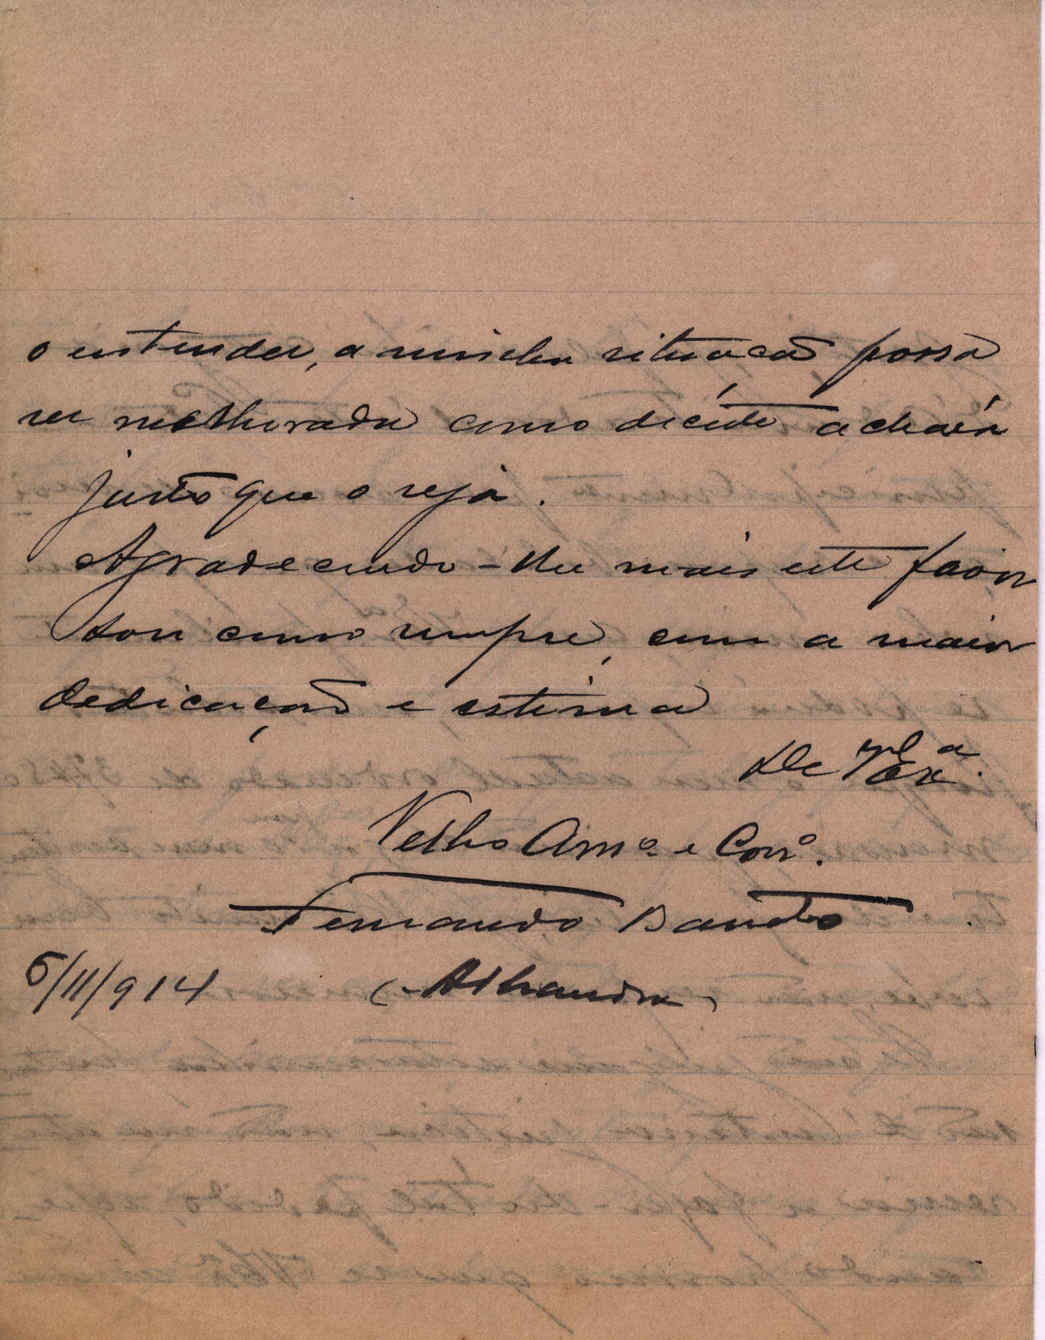 o entender, a minha situação possa
ser melhorada como decerto achará
justo que o seja.
Agradecendo-lhe mais este favor
sou como sempre, com a maior
dedicação e estima
De V. Exª.
Velho Amº e Corrº.
Fernando
5/11/914 (Alhandra)